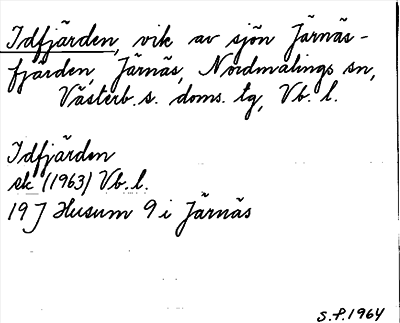 Idfjärden, vik av sjön Järnäs-
fjärden, Järnäs, Nordmalings sn,
Västerb. s. doms. tg, Vb. l.
Idfjärden
ek (1963) Vb. l.
19 J Husum 9 i Järnäs
S.P. 1964